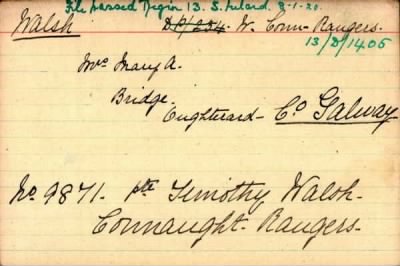 File passed Regn 13. S. Ireland. 8-1-20.
Walsh DP/254 W. Conn- Rangers.
13/D/1405
Mrs Mary A.
Bridge,
Oughterard- Co Galway
No 9871. Pte Timothy Walsh-
Connaught- Rangers-